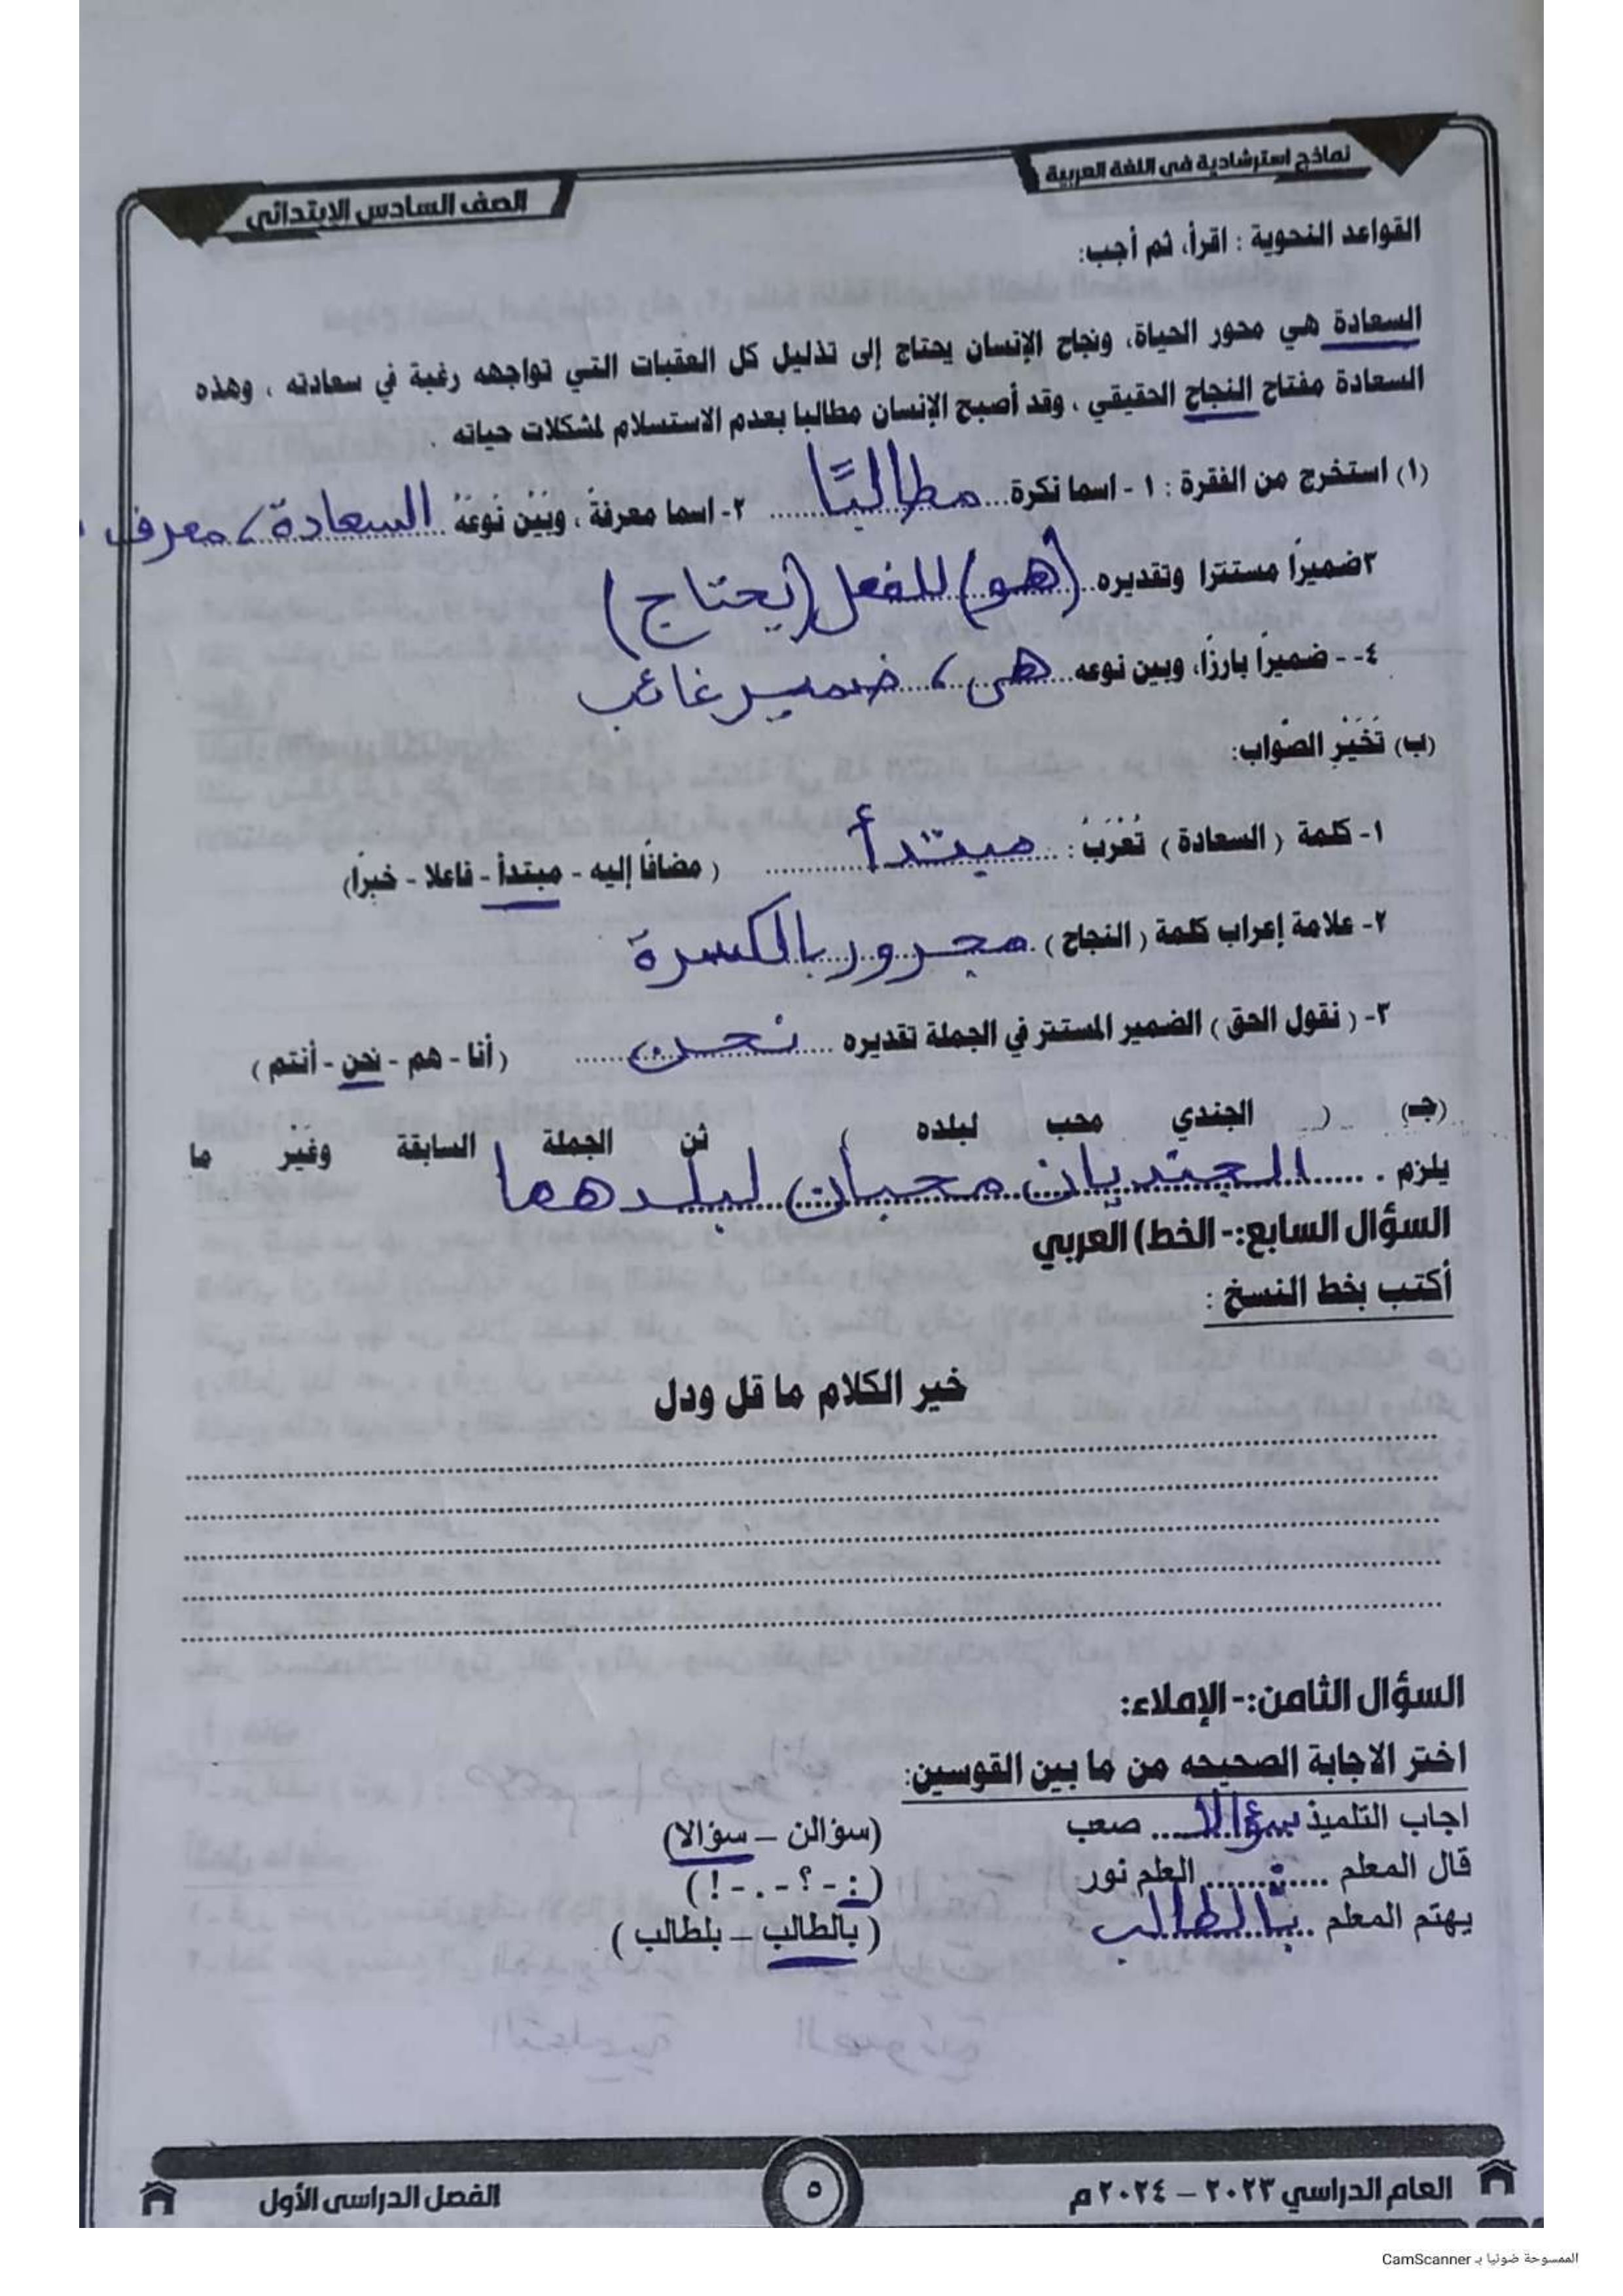 نماذج استرشادية فى اللغة العربية
الصف السادس الابتدائى
القواعد النحوية : اقرأ، ثم أجب:
السعادة هي محور الحياة، ونجاح الإنسان يحتاج إلى تذليل كل العقبات التي تواجهه رغبة في سعادته ، وهذه
السعادة مفتاح النجاح الحقيقي ، وقد أصبح الإنسان مطالبا بعدم الاستسلام لمشكلات حياته .
(١) استخرج من الفقرة : ١ - اسما نكرة... مطالبًا ...... ٢- اسما معرفةً ، وبَيِّنْ نَوعَهُ السعادة، معرف
٣ضميرًا مستترا وتقديره (هو) للفعل (يحتاج)
٤- - ضميرًا بارزًا، وبين نوعه هى ، ضمير غائب
(ب) تَخَيَّرِ الصَّواب:
١- كلمة ( السعادة ) تُعْرَبُ : مبتدأ ( مضافًا إليه - مبتدأ - فاعلا - خبرًا)
٢- علامة إعراب كلمة ( النجاح ) مجرور بالكسرة
٣- ( نقول الحق ) الضمير المستتر في الجملة تقديره ... نحن ...... ( أنا - هم - نحن - أنتم )
(جـ) ( الجندي محب لبلده ) ثن الجملة السابقة وغَيِّر ما
يلزم . ..... الجنديان محبان لبلدهما
السؤال السابع:- الخط) العربي
أكتب بخط النسخ :
خير الكلام ما قل ودل
السؤال الثامن:- الإملاء:
اختر الاجابة الصحيحه من ما بين القوسين:
اجاب التلميذ سؤالا ..... صعب (سؤالن – سؤالا)
قال المعلم ..... : ...... العلم نور ( : - ؟ - . - ! )
يهتم المعلم .. بالطالب ( بالطالب – بلطالب )
العام الدراسي ٢٠٢٣ – ٢٠٢٤ م
٥
الفصل الدراسى الأول
الممسوحة ضوئيا بـ CamScanner